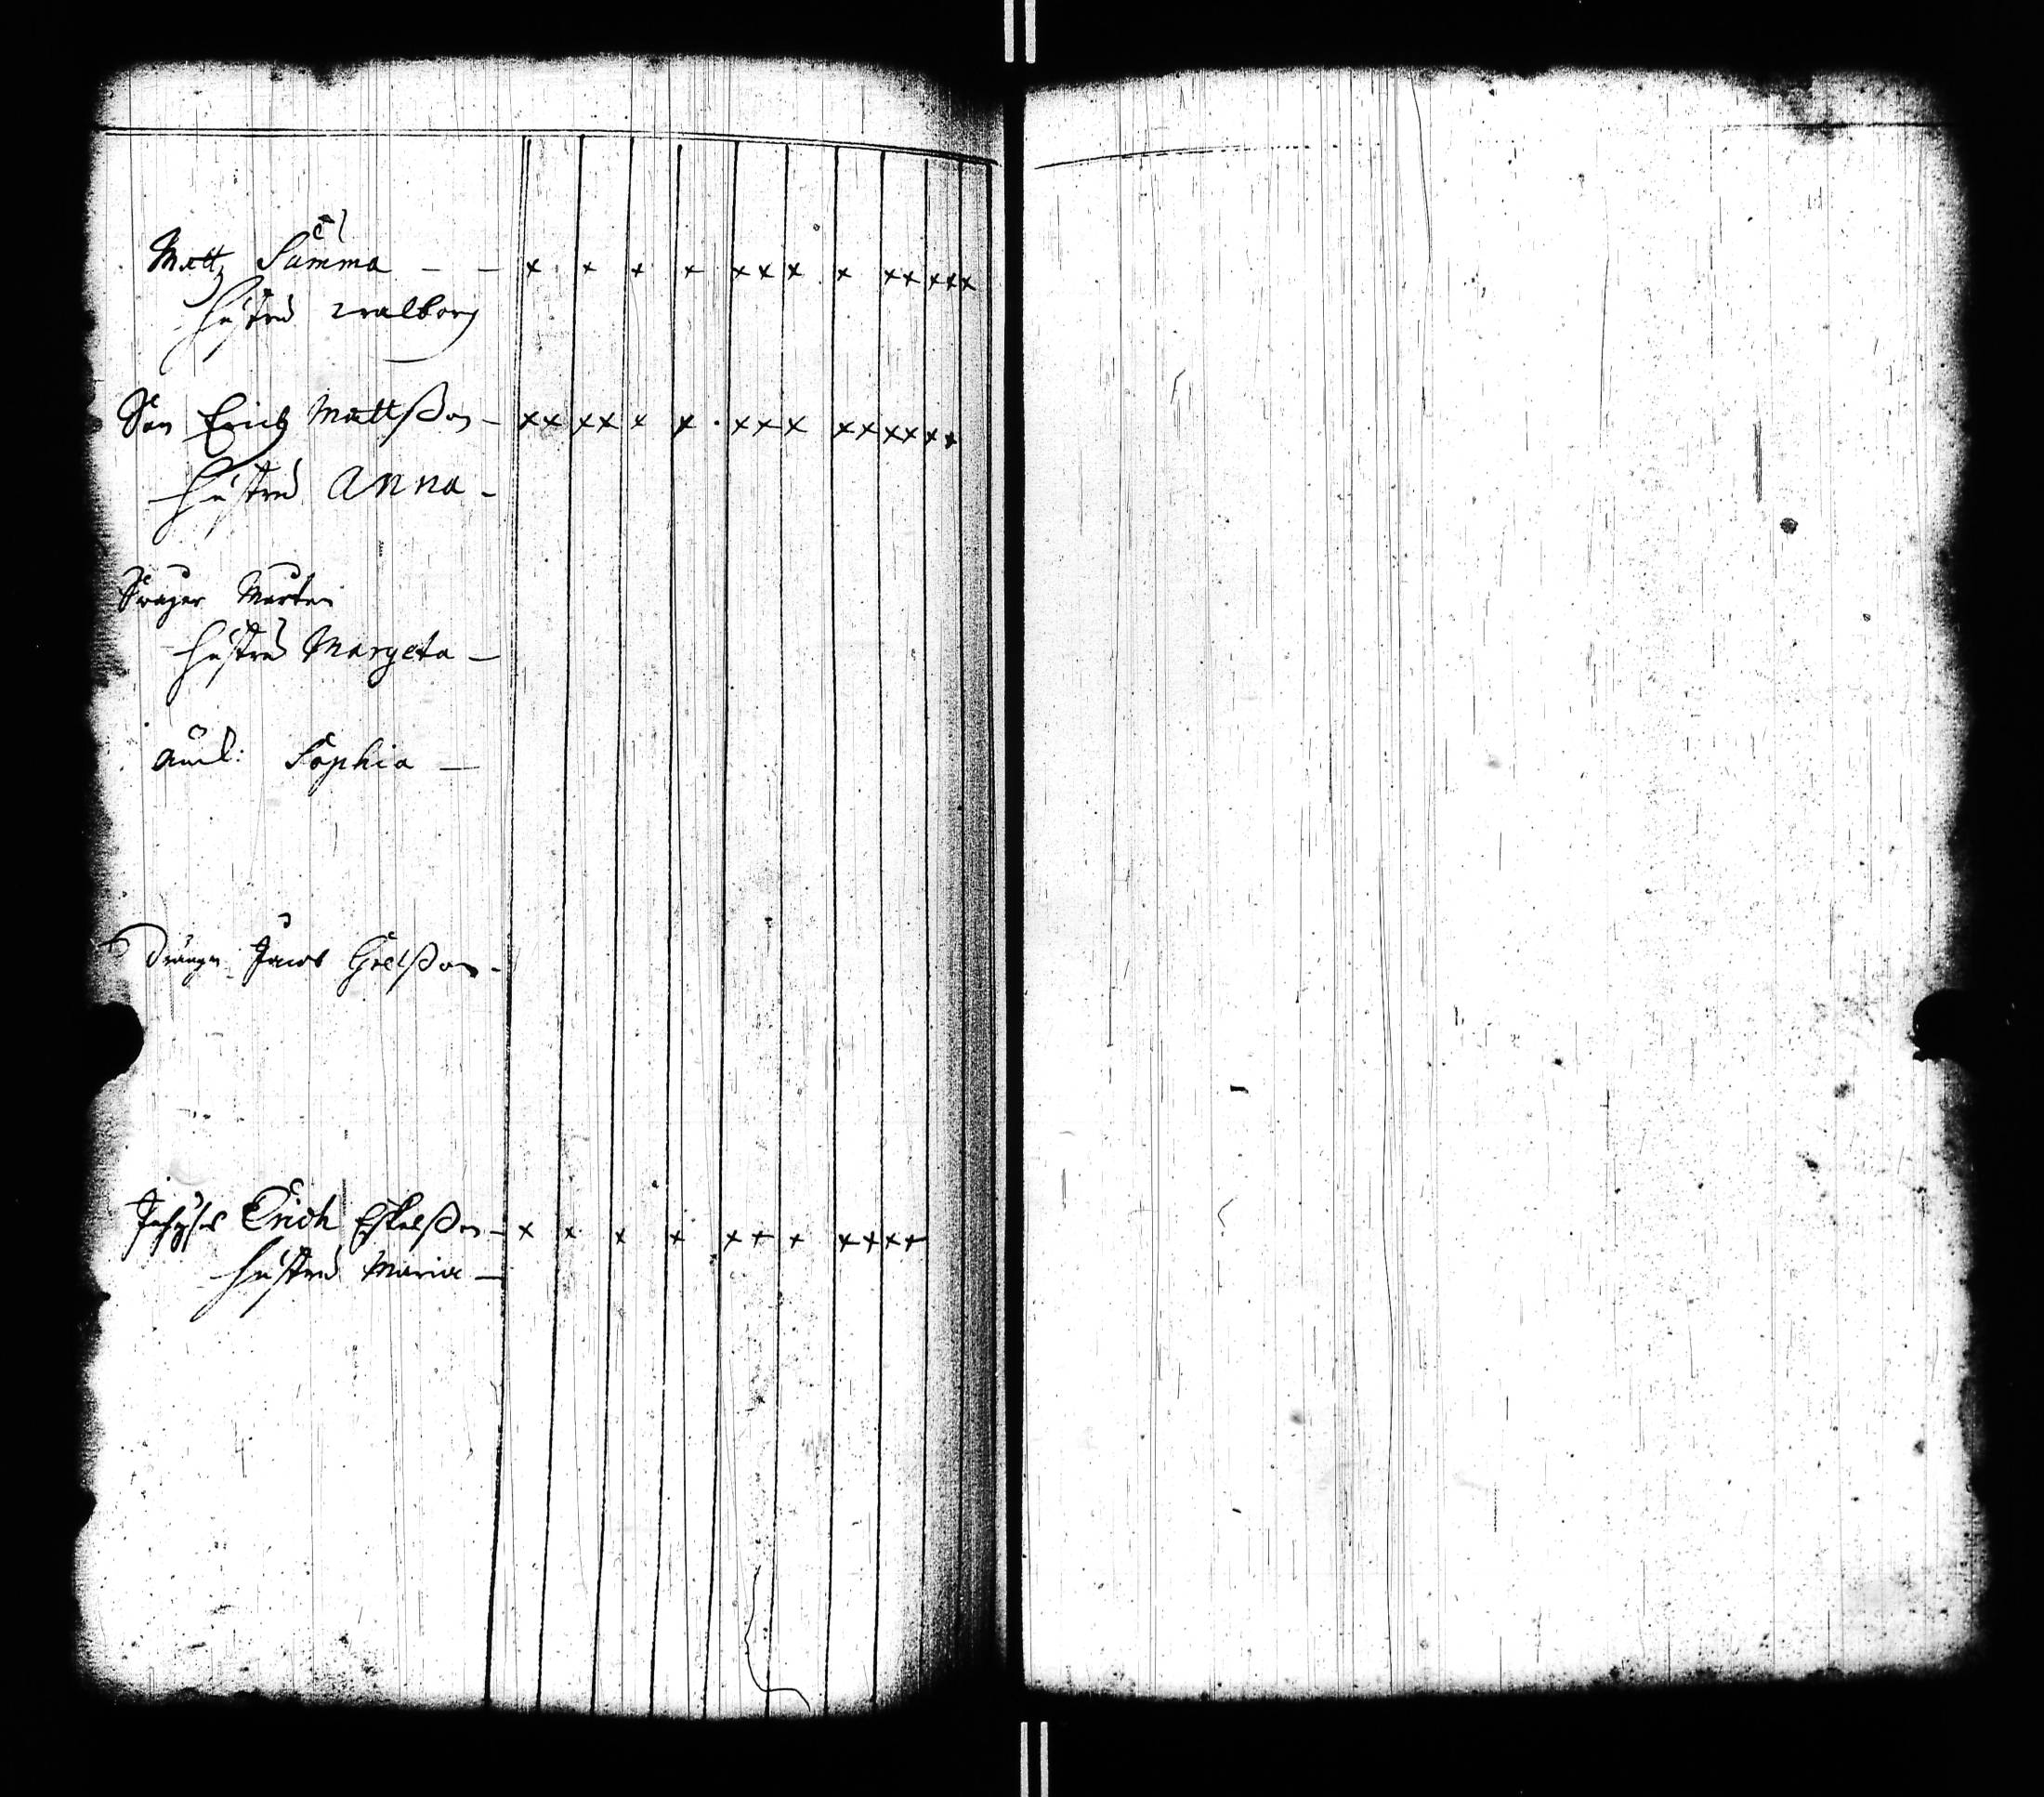 Matts Såmma - - x x x x xx x x xx xxx
Hustru Walborg
Son Erich Mattsson - xx xx x x xx x xx xx xx
Hustru Anna -
Swager Marten
Hustru Margeta -
Sophia -
Drängn Jacob Grelsson -
Inhyses Erich Eskelsson - x x x x xx x xx xx
Hustru Maria -